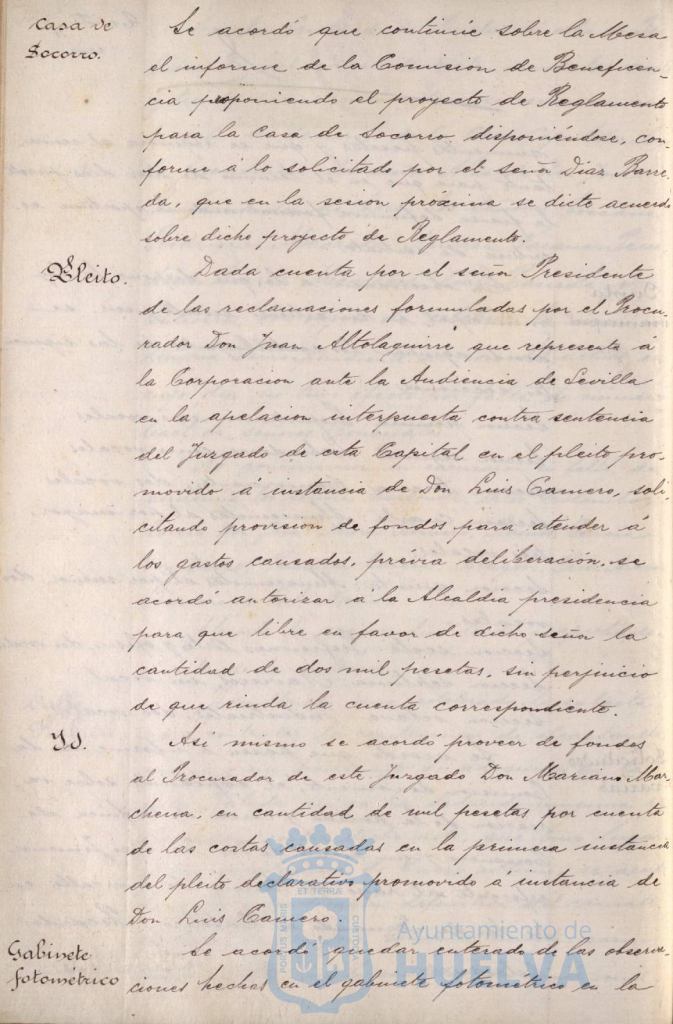 Casa de
Socorro.
Se acordó que continúe sobre la Mesa
el informe de la Comision de Beneficen-
cia proponiendo el proyecto de Reglamento
para la Casa de Socorro, disponiéndose, con-
forme á lo solicitado por el señor Diaz Barre-
da, que en la sesion próxima se dicte acuerdo
sobre dicho proyecto de Reglamento.
Pleito.
Dada cuenta por el señor Presidente
de las reclamaciones formuladas por el Procu-
rador Don Juan Altolaguirre que representa á
la Corporacion ante la Audiencia de Sevilla
en la apelacion interpuesta contra sentencia
del Juzgado de esta Capital en el pleito pro-
movido á instancia de Don Luis Camero, soli-
citando provision de fondos para atender á
los gastos causados, prévia deliberación, se
acordó autorizar á la Alcaldia presidencia
para que libre en favor de dicho señor la
cantidad de dos mil pesetas, sin perjuicio
de que rinda la cuenta correspondiente.
Id.
Asi mismo se acordó proveer de fondos
al Procurador de este Juzgado Don Mariano Mar-
chena, en cantidad de mil pesetas por cuenta
de las costas causadas en la primera instancia
del pleito declarativo promovido á instancia de
Don Luis Camero.
Gabinete
fotométrico
Se acordó quedar enterado de las observa-
ciones hechas en el gabinete fotométrico en la
PORTUS MARIS
ET TERRÆ
CUSTODIA
Ayuntamiento de
HUELVA